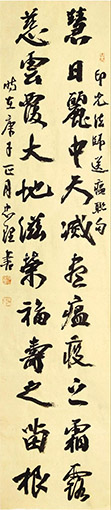 慧日麗中天滅盡瘟疫之霜露
慈雲覆大地滋榮福壽之齒根
印光法師送瘟聯句
時在庚子正月
書